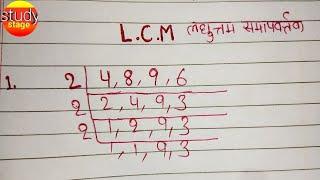 study
stage
L.C.M लघुत्तम समापवर्त्तक
1. 2 | 4, 8, 9, 6
2 | 2, 4, 9, 3
2 | 1, 2, 9, 3
1, 1, 9, 3